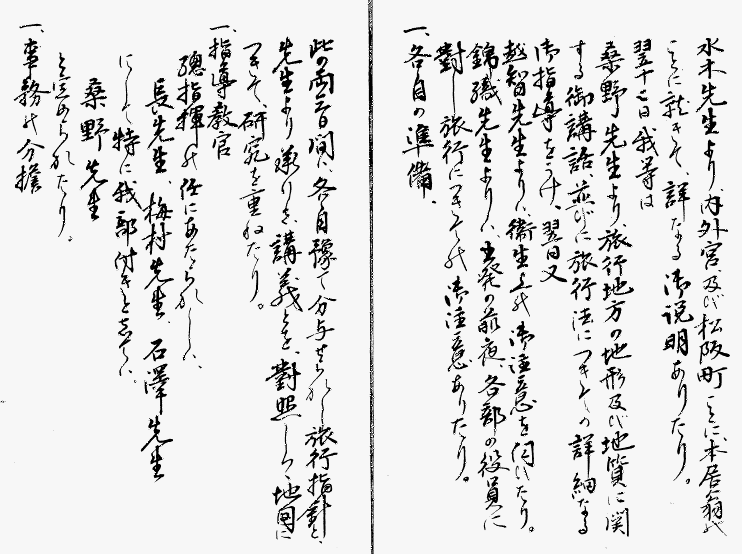 水木先生より、内外宮及び松阪町ことに本居翁の
ことに就きて、詳なる御説明ありたり。
翌十七日我等は
桑野先生より旅行地方の地形及び地質に関
する御講話、並びに旅行法につきての詳細なる
御指導をうけ、翌日又
越智先生よりハ、衛生上の御注意を伺ひたり。
錦織先生よりハ、出発の前夜、各部の役員に
對し旅行につきての御注意ありたり。
一、各自の準備、
此の両三日間ハ、各自豫て分与せられし旅行指針と、
先生より承りた講義とを、對照しつゝ地図に
つきて、研究を重ねたり。
一、指導教官
總指揮の任にあたられしハ、
長先生、梅村先生、石澤先生
にして特に我部附きとして、
桑野先生
をあてられたり。
一、事務の分擔